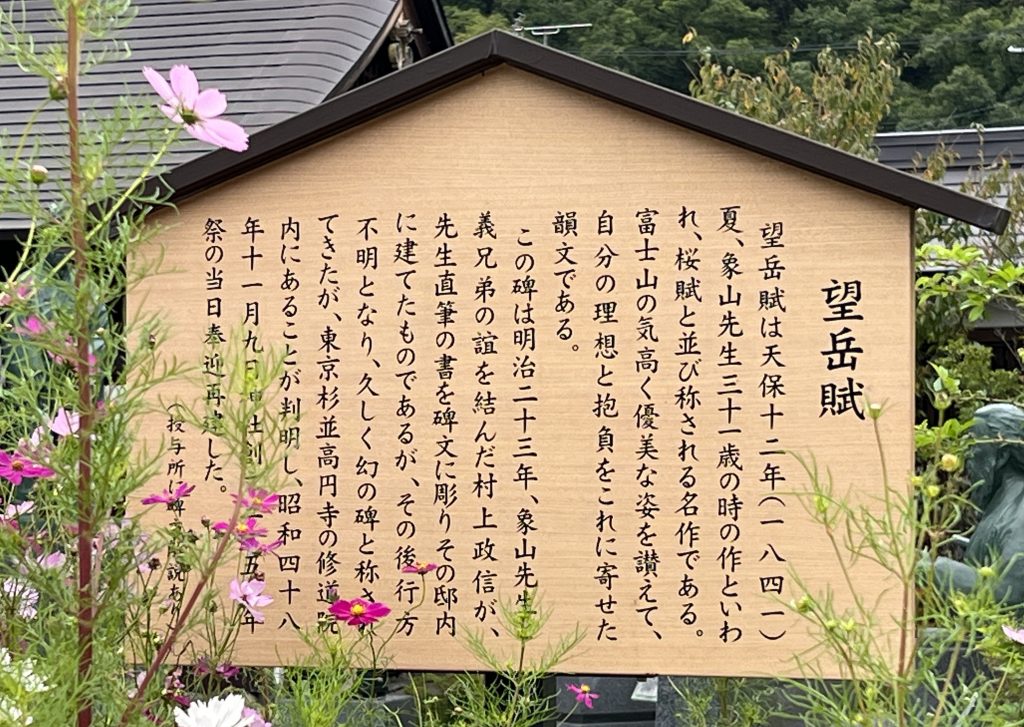 望岳賦
望岳賦は天保十二年(一八四一)
夏、象山先生三十一歳の時の作といわ
れ、桜賦と並び称される名作である。
富士山の気高く優美な姿を讃えて、
自分の理想と抱負をこれに寄せた
韻文である。
この碑は明治二十三年、象山先生
義兄弟の誼を結んだ村上政信が、
先生直筆の書を碑文に彫りその邸内
に建てたものであるが、その後行方
不明となり、久しく幻の碑と称さ
てきたが、東京杉並高円寺の修道院
内にあることが判明し、昭和四十八
年十一月九日 五年
祭の当日奉 再建した。
(授与所に碑 説あり